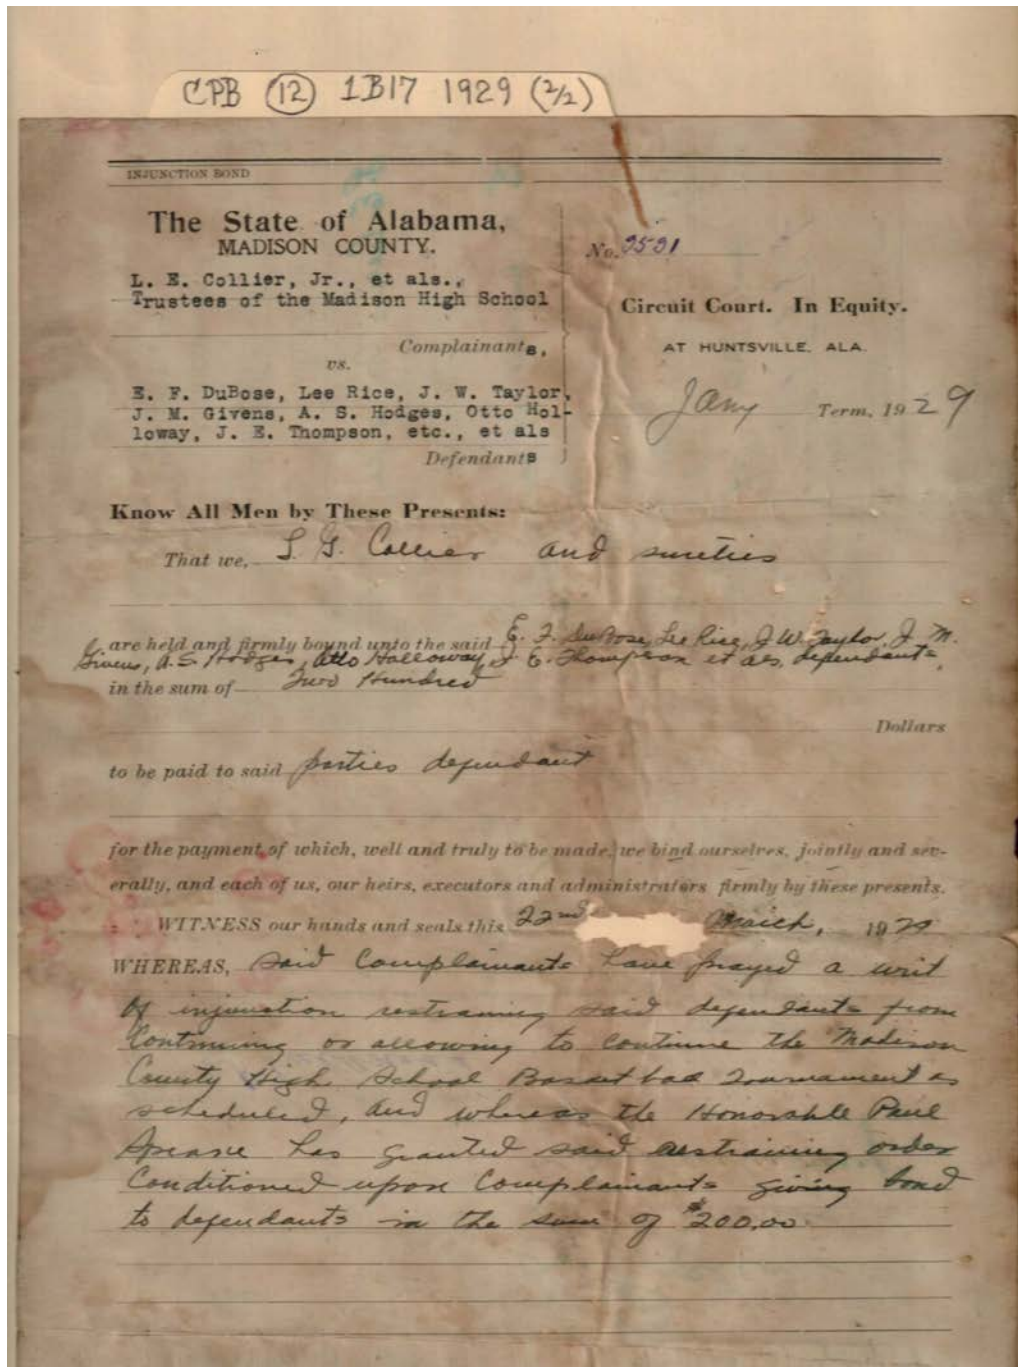 CPB (12) 1B17 1929 (2/2)
INJUNCTION BOND
The State of Alabama,
MADISON COUNTY.
L. E. Collier, Jr., et als.,
Trustees of the Madison High School
Complainants,
vs.
E. F. DuBose, Lee Rice, J. W. Taylor,
J. M. Givens, A. S. Hodges, Otto Hol-
loway, J. E. Thompson, etc., et als
Defendants
No. 3531
Circuit Court. In Equity.
AT HUNTSVILLE, ALA.
Jany Term, 1929
Know All Men by These Presents:
That we, Collier and sureties
are held and firmly bound unto the said E. F. DuBose, Lee Rice, J. W. Taylor, J. M.
Givens, A. S. Hodges, Otto Holloway, J. E. Thompson et als, dependants
in the sum of Two Hundred
Dollars
to be paid to said parties dependant
for the payment of which, well and truly to be made, we bind ourselves, jointly and sev-
erally, and each of us, our heirs, executors and administrators firmly by these presents.
WITNESS our hands and seals this 22nd March, 1929
WHEREAS, said Complainants have prayed a writ
of injunction restraining said dependants from
Continuing or allowing to continue the Madison
County High School Basket ball Tournament as
scheduled, and whereas the Honorable Paul
Speake has granted said restraining order
Conditioned upon Complainants giving bond
to dependants in the sum of $200.00.